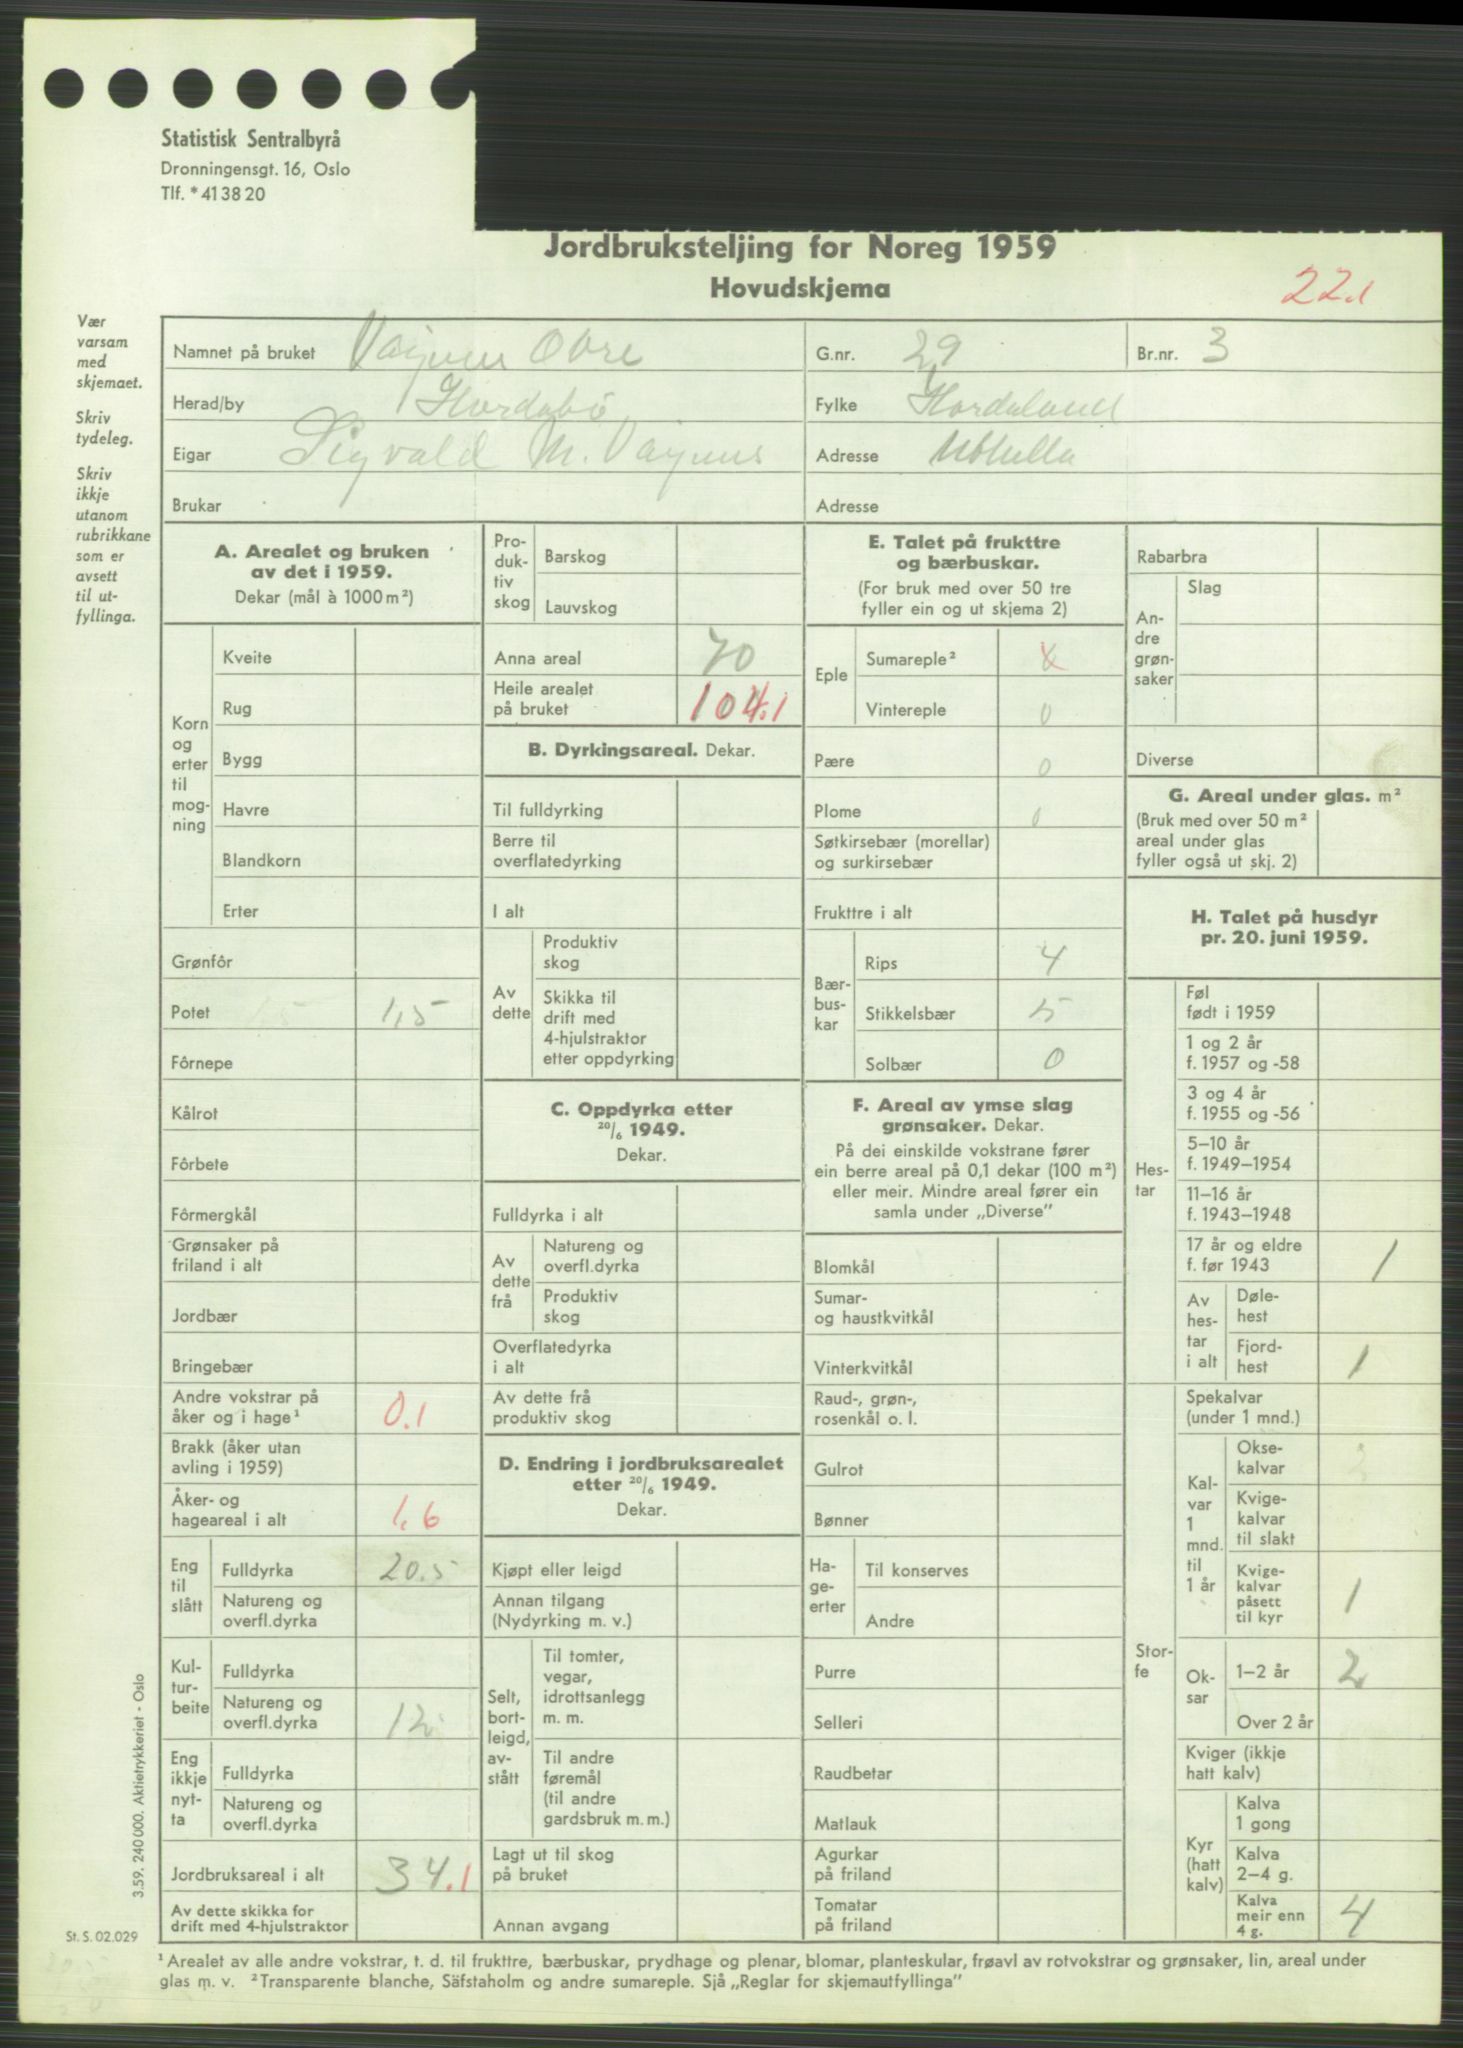 Statistisk Sentralbyrå
Dronningensgt. 16, Oslo
Tlf. *41 38 20
Jordbruksteljing for Noreg 1959
Hovudskjema
22.1
Vær
varsam
med
skjemaet.
Skriv
tydeleg.
Skriv
ikkje
utanom
rubrikkane
som er
avsett
til ut-
fyllinga.
Namnet på bruket Øvre G.nr. 29 Br.nr. 3
Herad/by Hordabø Fylke Hordaland
Eigar Sigvald M. Adresse
Brukar Adresse
A. Arealet og bruken
av det i 1959.
Dekar (mål à 1000 m²)
Korn
og
erter
til
mog-
ning
Kveite
Rug
Bygg
Havre
Blandkorn
Erter
Grønfôr
Potet 1,5
Fôrnepe
Kålrot
Fôrbete
Fôrmergkål
Grønsaker på
friland i alt
Jordbær
Bringebær
Andre vokstrar på
åker og i hage¹ 0.1
Brakk (åker utan
avling i 1959)
Åker- og
hageareal i alt 1,6
Eng
til
slått
Fulldyrka 20.5
Natureng og
overfl.dyrka
Kul-
tur-
beite
Fulldyrka
Natureng og
overfl.dyrka 12
Eng
ikkje
nyt-
ta
Fulldyrka
Natureng og
overfl.dyrka
Jordbruksareal i alt 34.1
Av dette skikka for
drift med 4-hjulstraktor
Pro-
duk-
tiv
skog
Barskog
Lauvskog
Anna areal 70
Heile arealet
på bruket 104.1
B. Dyrkingsareal. Dekar.
Til fulldyrking
Berre til
overflatedyrking
I alt
Av
dette
Produktiv
skog
Skikka til
drift med
4-hjulstraktor
etter oppdyrking
C. Oppdyrka etter
20/6 1949.
Dekar.
Fulldyrka i alt
Av
dette
frå
Natureng og
overfl.dyrka
Produktiv
skog
Overflatedyrka
i alt
Av dette frå
produktiv skog
D. Endring i jordbruksarealet
etter 20/6 1949.
Dekar.
Kjøpt eller leigd
Annan tilgang
(Nydyrking m. v.)
Selt,
bort-
leigd,
av-
stått
Til tomter,
vegar,
idrottsanlegg
m. m.
Til andre
føremål
(til andre
gardsbruk m. m.)
Lagt ut til skog
på bruket
Annan avgang
E. Talet på frukttre
og bærbuskar.
(For bruk med over 50 tre
fyller ein og ut skjema 2)
Eple
Sumareple²
Vintereple 0
Pære 0
Plome 0
Søtkirsebær (morellar)
og surkirsebær
Frukttre i alt
Bær-
bus-
kar
Rips 4
Stikkelsbær 5
Solbær 0
F. Areal av ymse slag
grønsaker. Dekar.
På dei einskilde vokstrane fører
ein berre areal på 0,1 dekar (100 m²)
eller meir. Mindre areal fører ein
samla under „Diverse”
Blomkål
Sumar-
og haustkvitkål
Vinterkvitkål
Raud-, grøn-,
rosenkål o. l.
Gulrot
Bønner
Ha-
ge-
erter
Til konserves
Andre
Purre
Selleri
Raudbetar
Matlauk
Agurkar
på friland
Tomatar
på friland
Rabarbra
An-
dre
grøn-
saker
Slag
Diverse
G. Areal under glas. m²
(Bruk med over 50 m²
areal under glas
fyller også ut skj. 2)
H. Talet på husdyr
pr. 20. juni 1959.
Hes-
tar
Føl
født i 1959
1 og 2 år
f. 1957 og -58
3 og 4 år
f. 1955 og -56
5–10 år
f. 1949–1954
11–16 år
f. 1943–1948
17 år og eldre
f. før 1943 1
Av
hes-
tar
i alt
Døle-
hest
Fjord-
hest 1
Stor-
fe
Spekalvar
(under 1 mnd.)
Kal-
var
1
mnd.
til
1 år
Okse-
kalvar
Kvige-
kalvar
til slakt
Kvige-
kalvar
påsett
til kyr 1
Ok-
sar
1–2 år 2
Over 2 år
Kviger (ikkje
hatt kalv)
Kyr
(hatt
kalv)
Kalva
1 gong
Kalva
2–4 g.
Kalva
meir enn
4 g. 4
3.59. 240 000. Aktietrykkeriet - Oslo
St. S. 02.029
¹ Arealet av alle andre vokstrar, t. d. til frukttre, bærbuskar, prydhage og plenar, blomar, planteskular, frøavl av rotvokstrar og grønsaker, lin, areal under
glas m. v. ² Transparente blanche, Säfstaholm og andre sumareple. Sjå „Reglar for skjemautfyllinga”